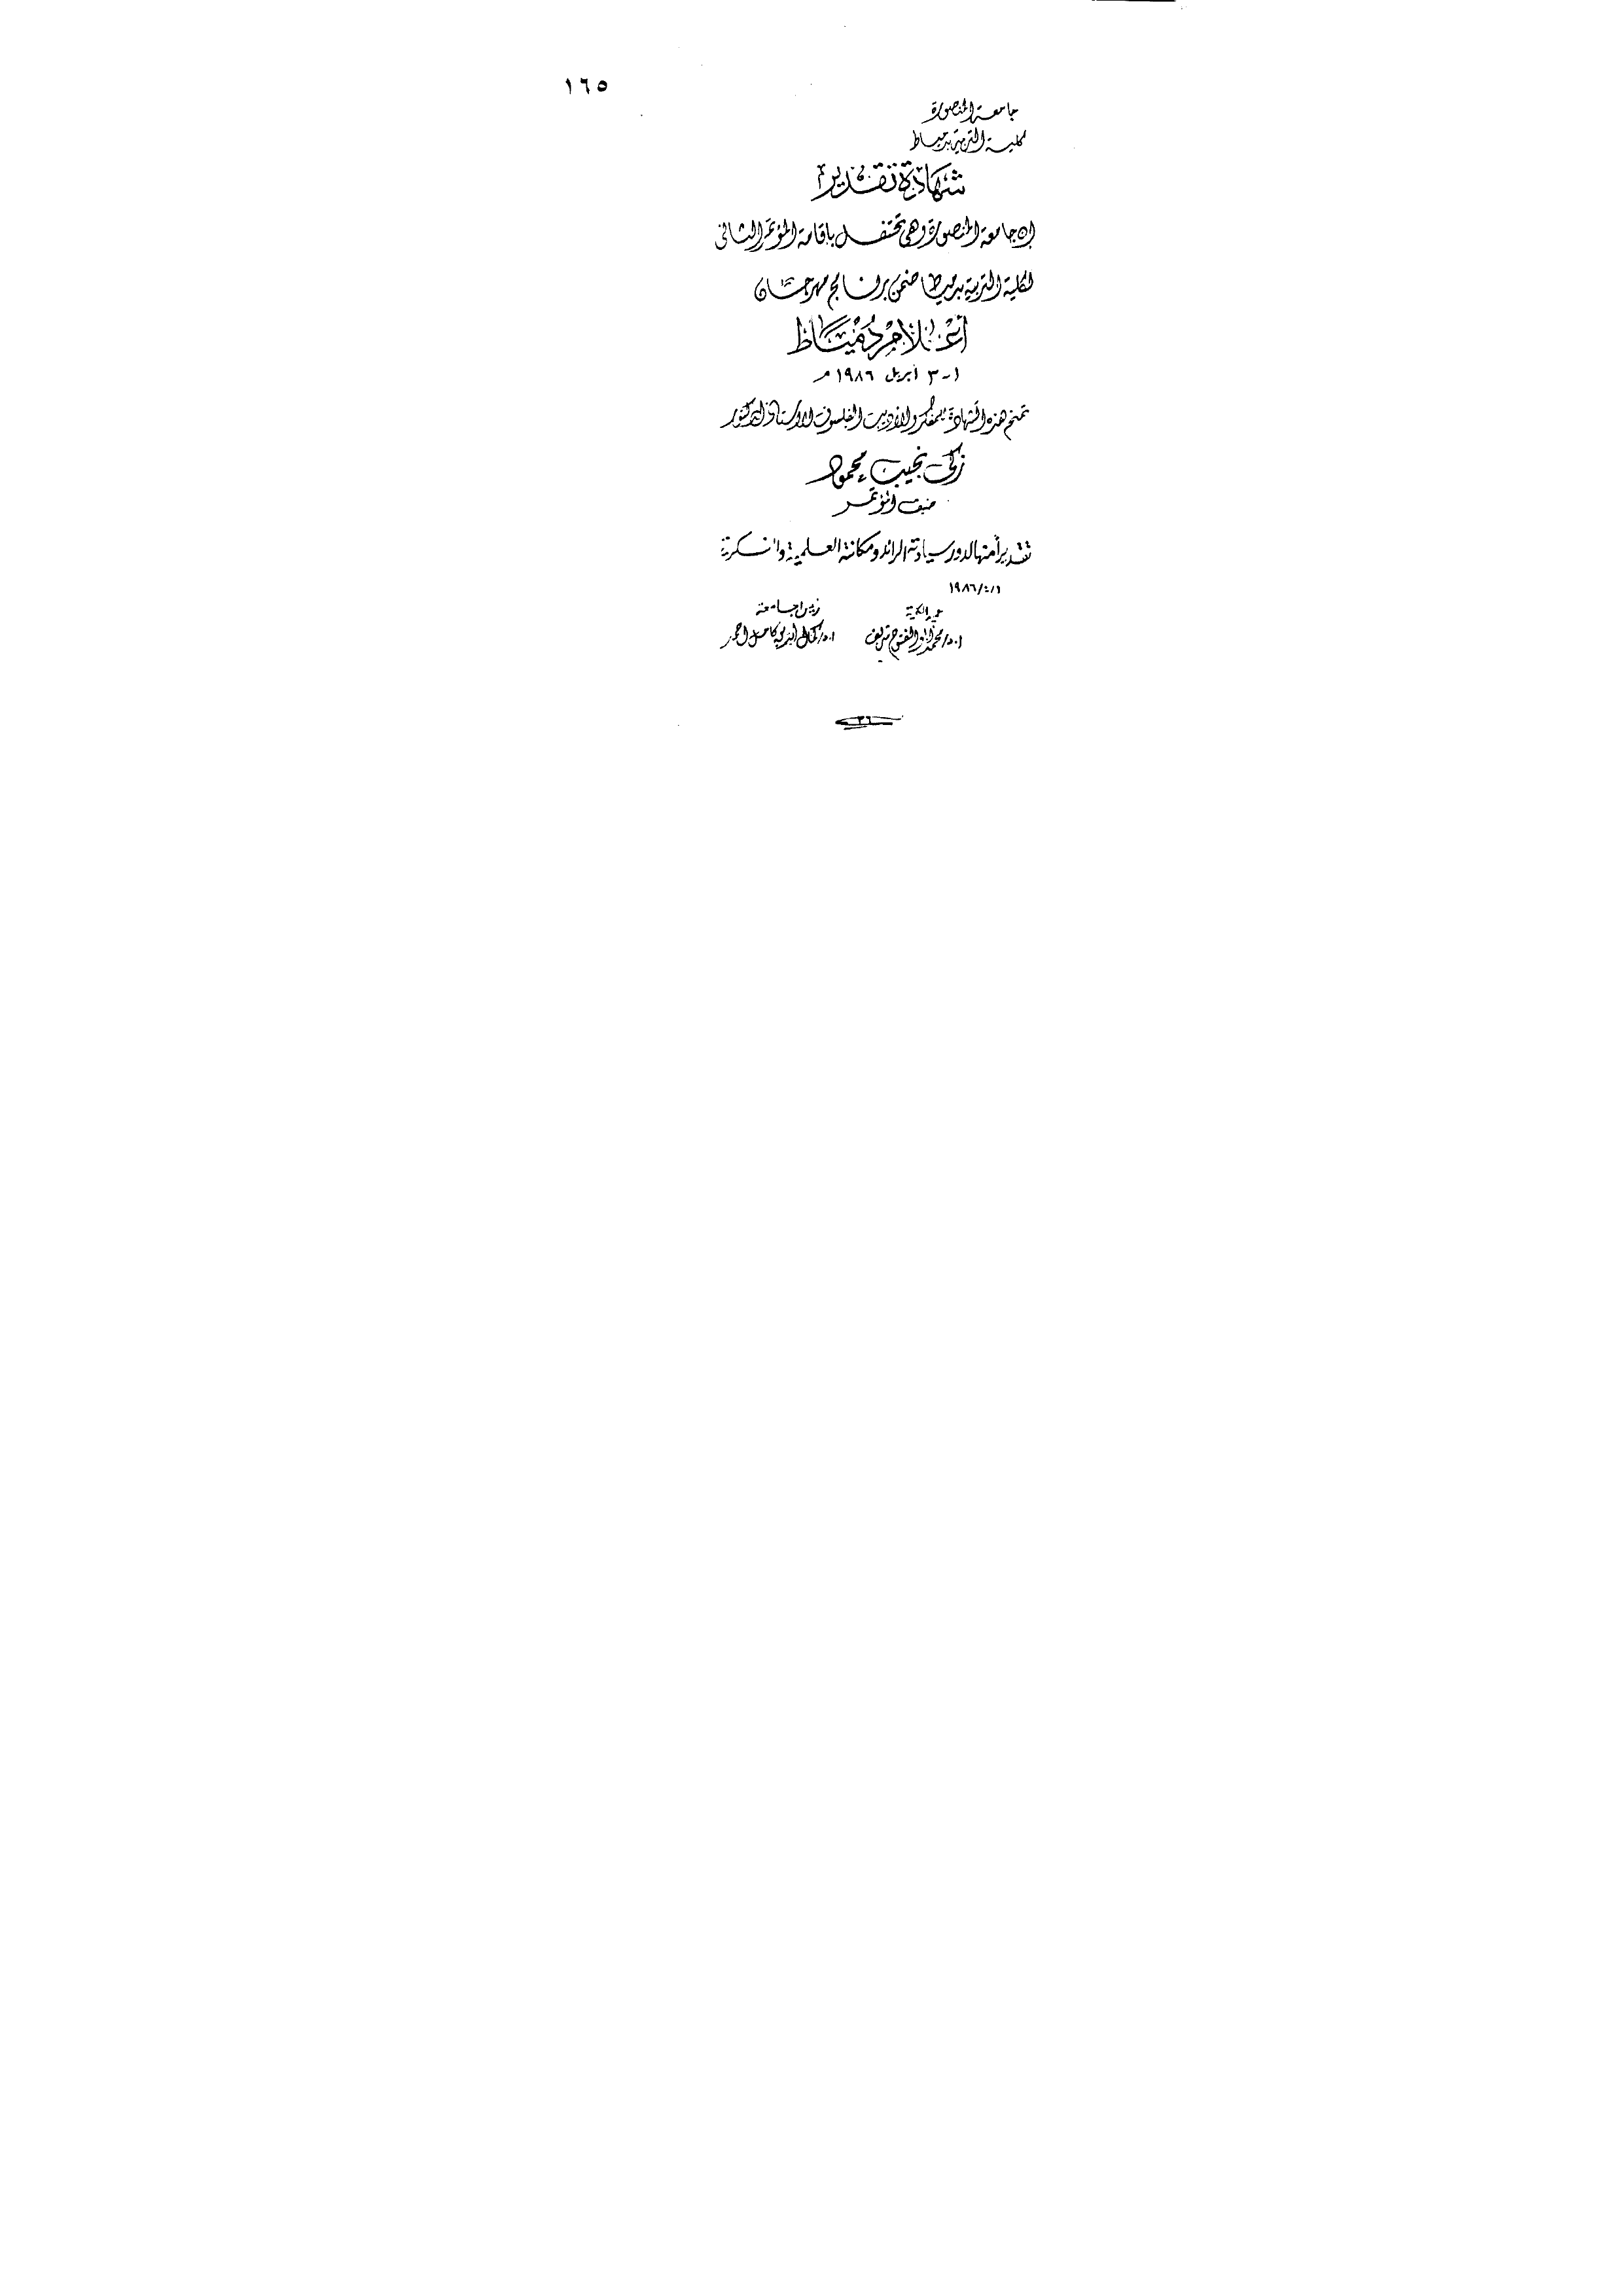 ١٦٥
جامعة المنصورة
كلية التربية بدمياط
شهادة تقدير
إن جامعة المنصورة وهى تحتفل بإقامة المؤتمر الثانى
لكلية التربية بدمياط ضمن برنامج مهرجان
أعلام دمياط
١ - ٣ أبريل ١٩٨٦ م
تمنح هذه الشهادة للمفكر والأديب الفيلسوف الأستاذ الدكتور
زكى نجيب محمود
ضيف المؤتمر
تقديراً منها لدور سيادته الرائد ومكانته العلمية والفكرية
١٩٨٦/٤/١
عميد الكلية رئيس الجامعة
ا.د/ محمد أبو الفتوح شريف ا.د/ كمال الدين كامل احمد
٣٦